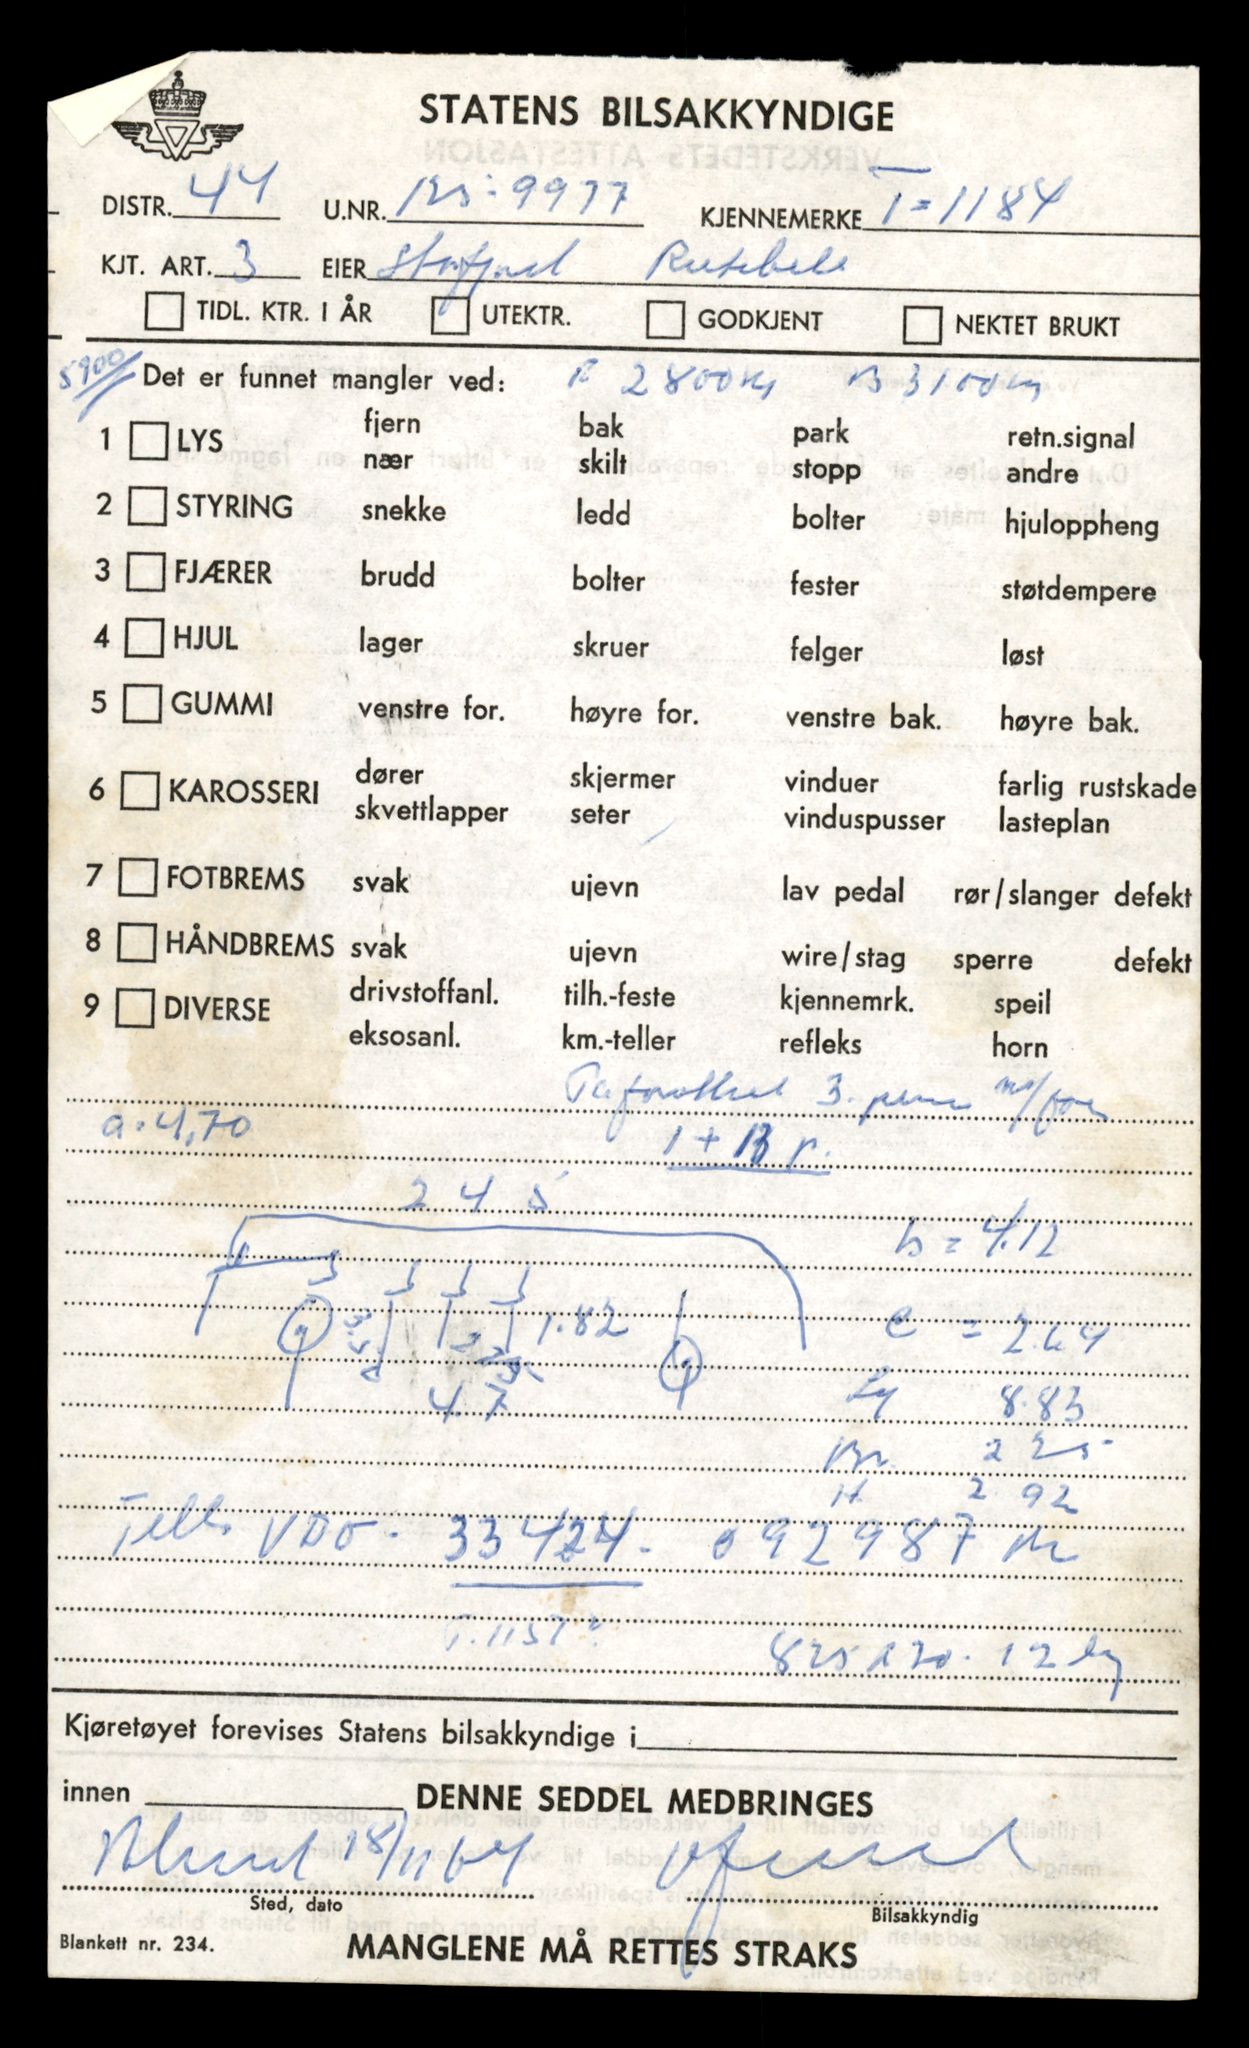 STATENS BILSAKKYNDIGE
DISTR. 44 U.NR. 125-9977 KJENNEMERKE T-1184
KJT. ART. 3 EIER Rutebil
TIDL. KTR. I ÅR UTEKTR. GODKJENT NEKTET BRUKT
5900 Det er funnet mangler ved: F 2800 kg B 3100 kg
1 LYS fjern bak park retn.signal
nær skilt stopp andre
2 STYRING snekke ledd bolter hjuloppheng
3 FJÆRER brudd bolter fester støtdempere
4 HJUL lager skruer felger løst
5 GUMMI venstre for. høyre for. venstre bak. høyre bak.
6 KAROSSERI dører skjermer vinduer farlig rustskade
skvettlapper seter vinduspusser lasteplan
7 FOTBREMS svak ujevn lav pedal rør/slanger defekt
8 HÅNDBREMS svak ujevn wire/stag sperre defekt
9 DIVERSE drivstoffanl. tilh.-feste kjennemrk. speil
eksosanl. km.-teller refleks horn
3. m/for
a. 4,70
1 +
2 4 5
b = 4.12
1.82
c = 2.64
4.7
Lg 8.83
Br 2 25
H 2.92
Teller VDO - 33424 - 092987 Nr
T.1157
825 x 20 - 12 lag
Kjøretøyet forevises Statens bilsakkyndige i
innen DENNE SEDDEL MEDBRINGES
18/11 64
Sted, dato Bilsakkyndig
Blankett nr. 234. MANGLENE MÅ RETTES STRAKS